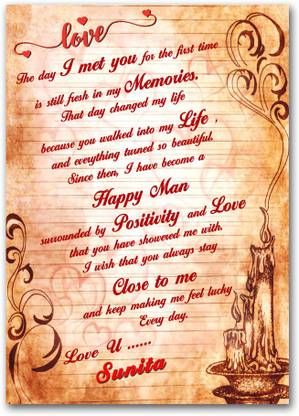 love
The day I met you for the first time
is still fresh in my Memories.
That day changed my life
because you walked into my Life ,
and everything turned so beautiful.
Since then, I have become a
Happy Man
surrounded by Positivity and Love
that you have showered me with.
I wish that you always stay
Close to me
and keep making me feel lucky
Every day.
Love U ......
Sunita